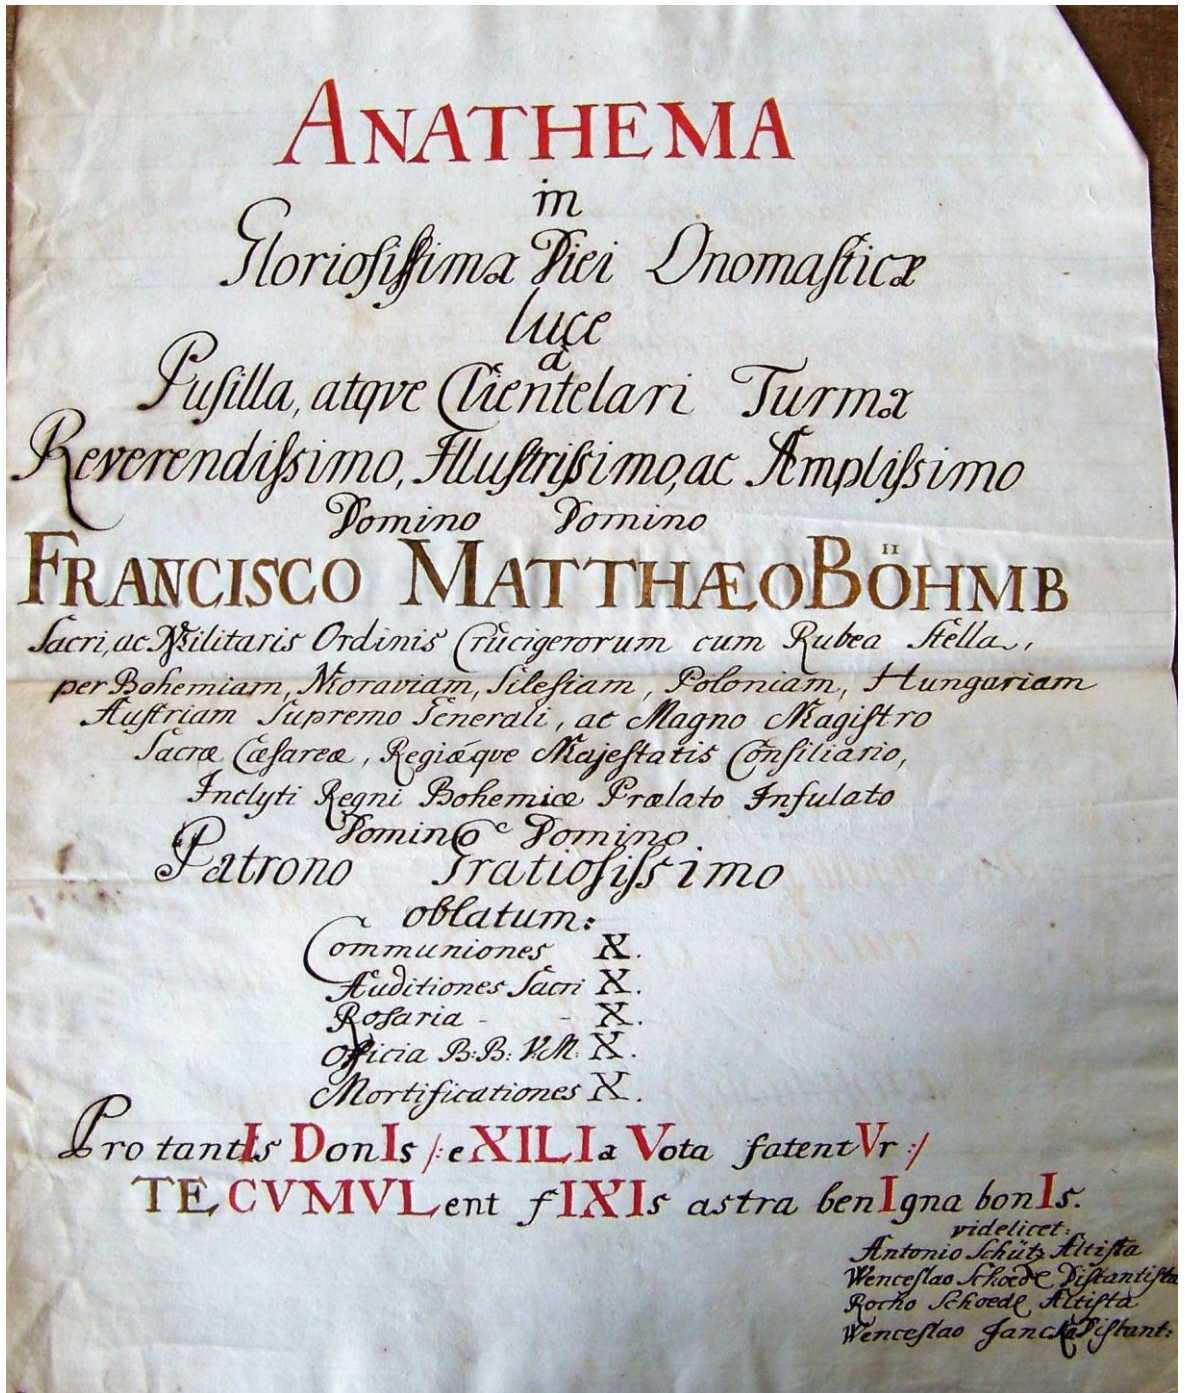 ANATHEMA
in
Gloriosissimæ Diei Onomasticæ
luce
à
Pusilla, atqve Clientelari Turma
Reverendissimo, Illustrissimo, ac Amplissimo
Domino Domino
FRANCISCO MATTHÆO BÖHMB
Sacri, ac Militaris Ordinis Crucigerorum cum Rubea Stella,
per Bohemiam, Moraviam, Silesiam, Poloniam, Hungariam
Austriam Supremo Generali, ac Magno Magistro
Sacræ Cæsareæ, Regiæqve Majestatis Consiliario,
Inclyti Regni Bohemiæ Prælato Infulato
Domino Domino
Patrono Gratiosissimo
oblatum:
Communiones X.
Auditiones Sacri X.
Rosaria - - X.
Officia B: B: V: M: X.
Mortificationes X.
Pro tantIs DonIs /: eXILIa Vota fatentVr :/
TE CVMVLent fIXIs astra benIgna bonIs.
videlicet:
Antonio Schütz Altista
Wenceslao Schoedl Distantista
Rocho Schoedl Altista
Wenceslao Distant: